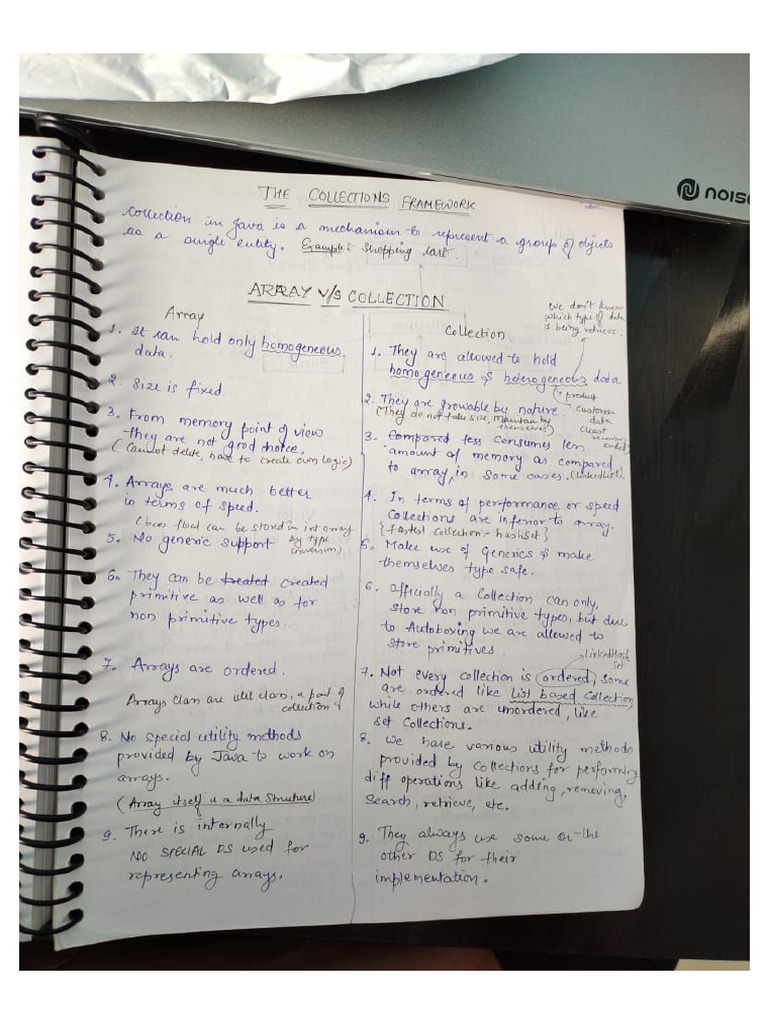 noise
THE COLLECTIONS FRAMEWORK
Collection in Java is a mechanism to represent a group of objects
as a single entity. Example:- Shopping cart.
ARRAY V/S COLLECTION
Array
1. It can hold only homogeneous
data.
2. Size is fixed.
3. From memory point of view
they are not good choice.
(Cannot delete, have to create own logic)
4. Arrays are much better
in terms of speed.
(been float can be stored in int array
by type
conversion)
5. No generic support
6. They can be treated created
primitive as well as for
non primitive types.
7. Arrays are ordered.
Arrays class are util class, a part of
collections
8. No special utility methods
provided by Java to work on
arrays.
(Array itself is a data structure)
9. There is internally
NO SPECIAL DS used for
representing arrays.
we don't know
which type of data
is being retrieve.
Collection
1. They are allowed to hold
homogeneous & heterogeneous data
product
customer
data
2. They are growable by nature.
(They do not take size, maintain by
themselves)
3. Compared less consumes less
amount of memory as compared
to array, in some cases. (LinkedList)
4. In terms of performance or speed
collections are inferior to array.
{fastest collection - hashSet}
5. Make use of Generics & make
themselves type safe.
6. Officially a Collection can only,
store non primitive types, but due
to Autoboxing we are allowed to
store primitives.
LinkedHash
Set
7. Not every collection is ordered, some
are ordered like List based Collection
while others are unordered, like
set Collections.
8. We have various utility methods
provided by Collections for performing
diff operations like adding, removing,
search, retrieve, etc.
9. They always use some or the
other DS for their
implementation.